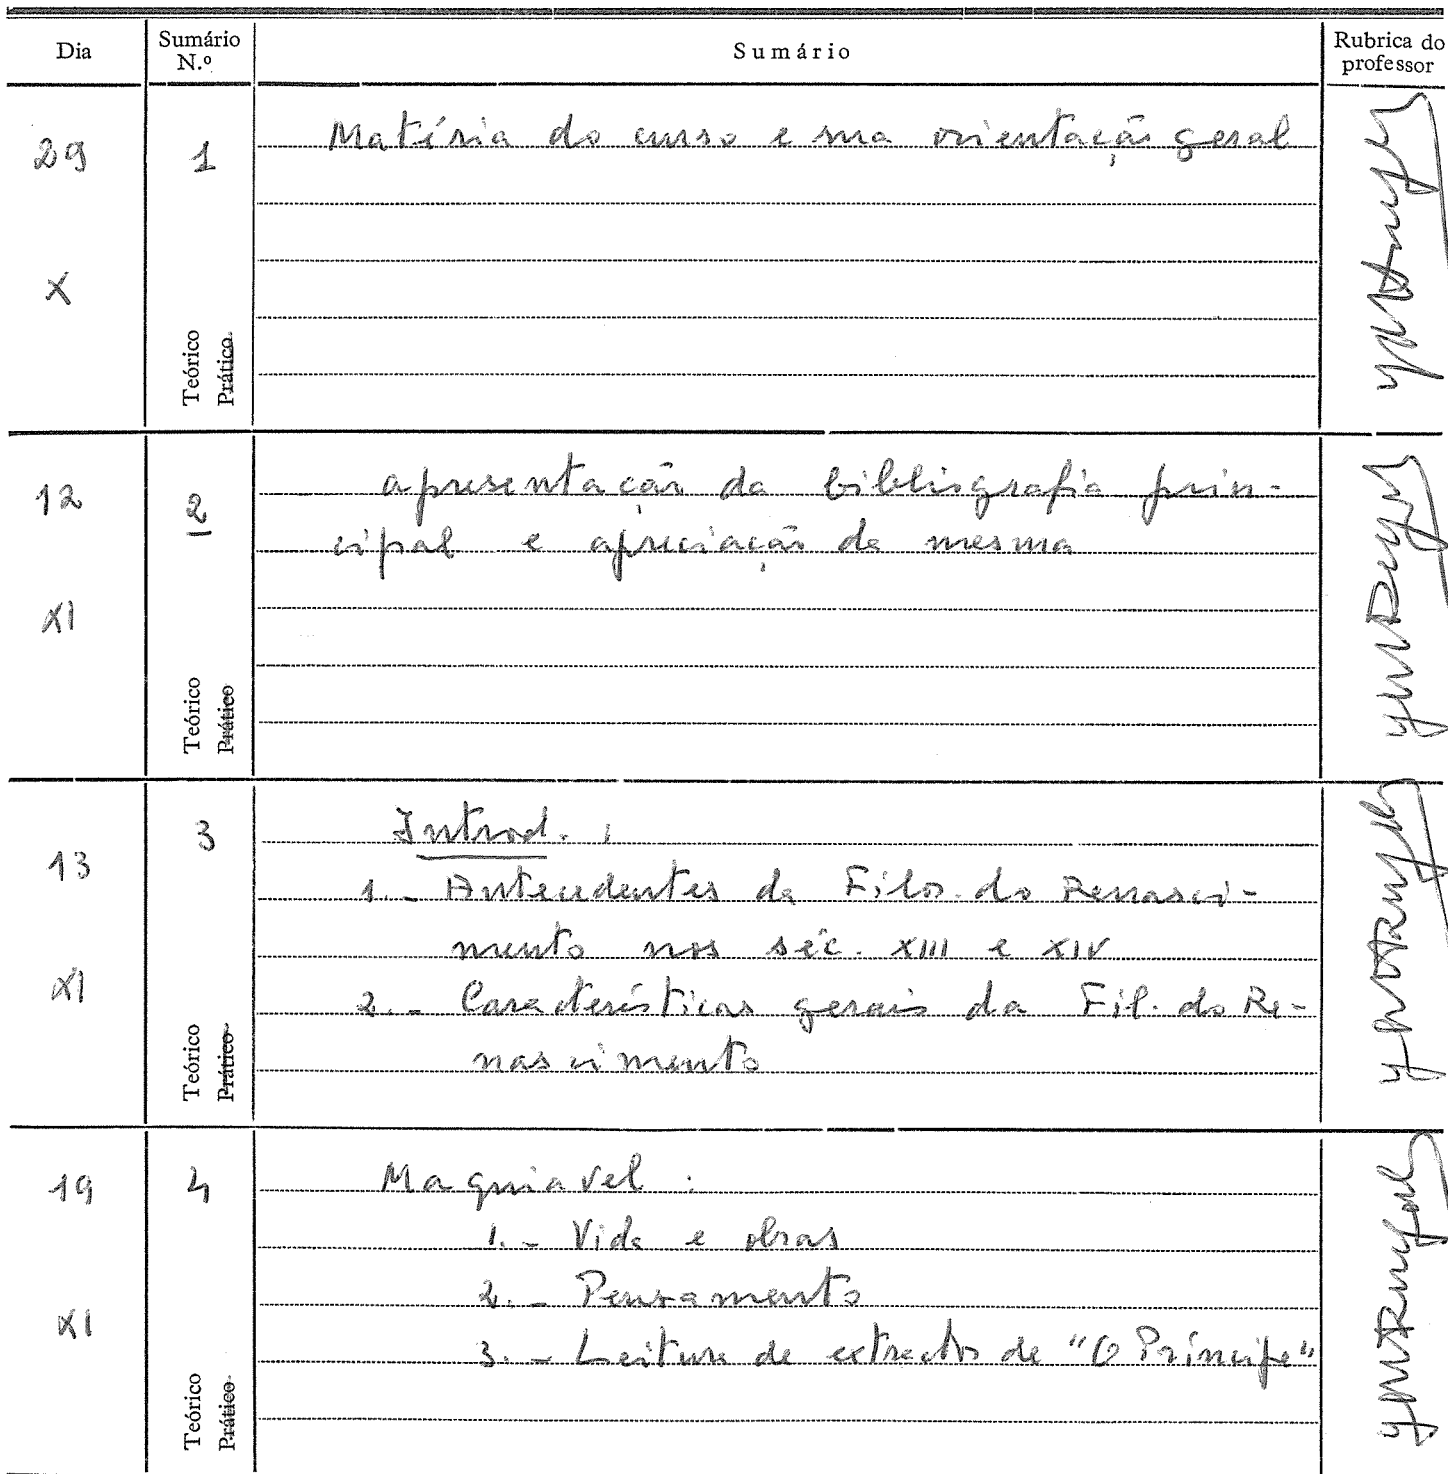 Dia
Sumário N.º
Sumário
Rubrica do professor
29
X
1
Teórico
Prático
Matéria do curso e sua orientação geral
12
XI
2
Teórico
Prático
apresentação da bibliografia prin-
cipal e apreciação da mesma
13
XI
3
Teórico
Prático
Introd. :
1. - Antecedentes da Filos. do Renasci-
mento nos séc. XIII e XIV
2. - Características gerais da Fil. do Re-
nascimento
19
XI
4
Teórico
Prático
Maquiavel :
1. - Vida e obras
2. - Pensamento
3. - Leitura de extractos de "O Príncipe"